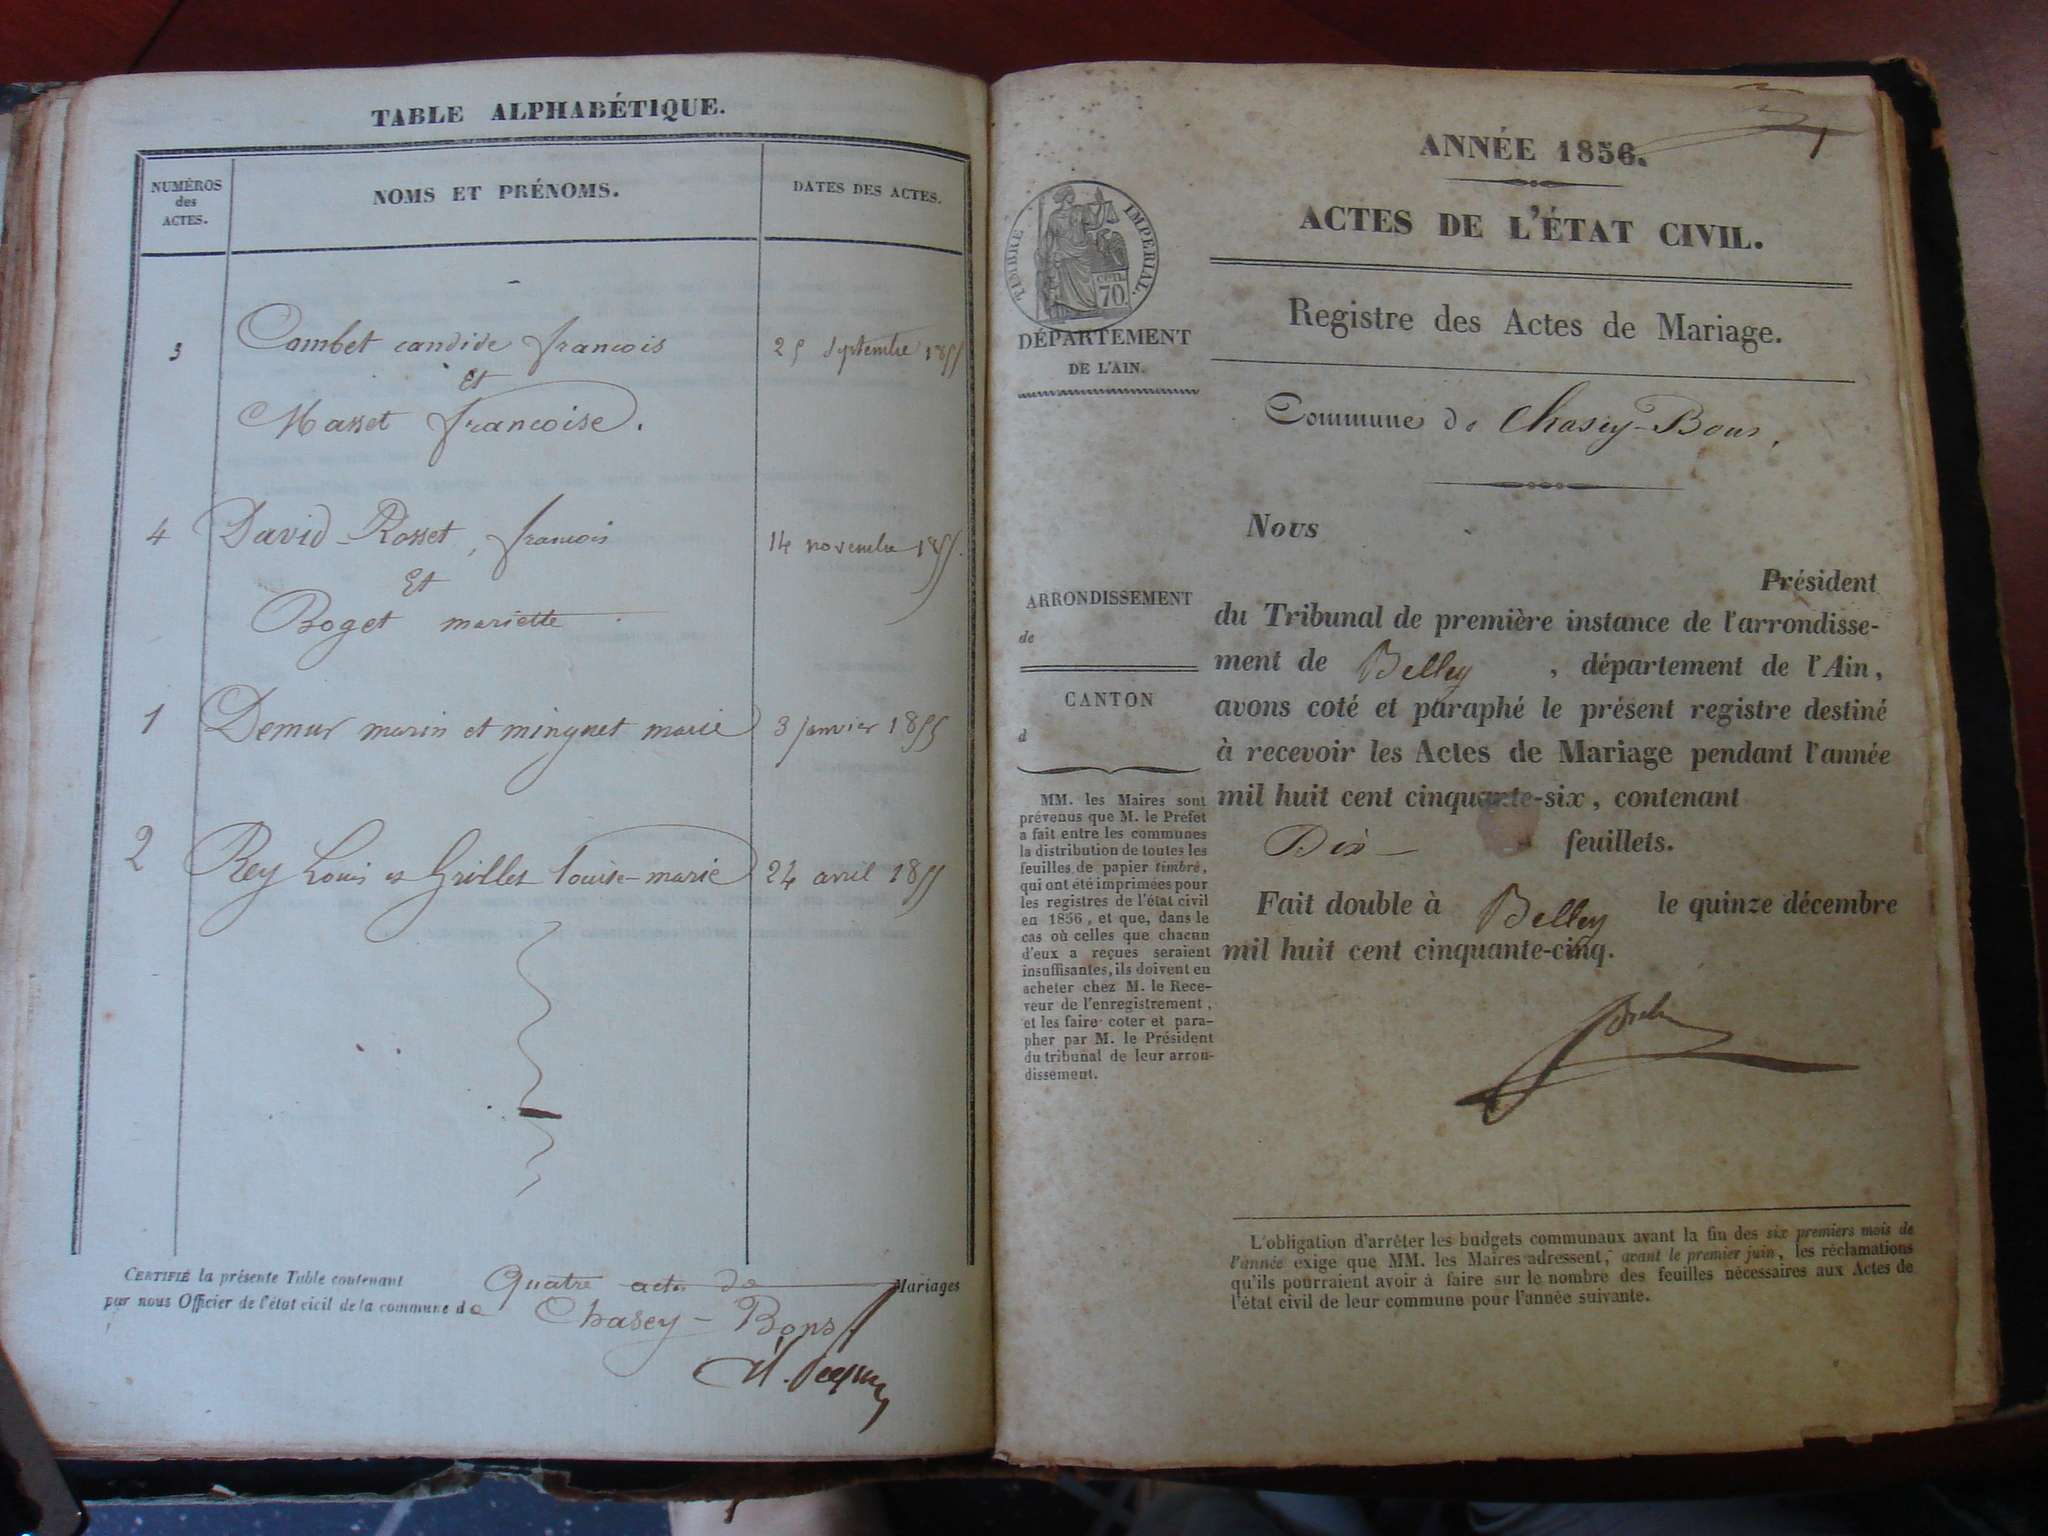 TABLE ALPHABÉTIQUE.
NUMÉROS
des
ACTES.
NOMS ET PRÉNOMS.
DATES DES ACTES.
3 Combet candide francois 25 Septembre 1855
Et
Masset francoise.
4 David-Rosset, francois 14 novembre 1855.
Et
Boget mariette.
1 Demur marin et mingret marie 3 janvier 1855
2 Rey Louis et Grillet louise-marie 24 avril 1855
CERTIFIÉ la présente Table contenant Quatre actes de Mariages
par nous Officier de l'état cicil de la commune de Chasey-Bons
ANNÉE 1856.
1
ACTES DE L'ÉTAT CIVIL.
TIMBRE IMPERIAL.
cen.
70
DÉPARTEMENT
DE L'AIN.
Registre des Actes de Mariage.
Commune de Chasey-Bons,
Nous
Président
du Tribunal de première instance de l'arrondisse-
ment de Belley, département de l'Ain,
avons coté et paraphé le présent registre destiné
à recevoir les Actes de Mariage pendant l'année
mil huit cent cinquante-six, contenant
Dix feuillets.
Fait double à Belley le quinze décembre
mil huit cent cinquante-cinq.
ARRONDISSEMENT
de
CANTON
d
MM. les Maires sont
prévenus que M. le Préfet
a fait entre les communes
la distribution de toutes les
feuilles de papier timbré,
qui ont été imprimées pour
les registres de l'état civil
en 1856, et que, dans le
cas où celles que chacun
d'eux a reçues seraient
insuffisantes, ils doivent en
acheter chez M. le Rece-
veur de l'enregistrement,
et les faire coter et para-
pher par M. le Président
du tribunal de leur arron-
dissement.
L'obligation d'arrêter les budgets communaux avant la fin des six premiers mois de
l'année exige que MM. les Maires adressent, avant le premier juin, les réclamations
qu'ils pourraient avoir à faire sur le nombre des feuilles nécessaires aux Actes de
l'état civil de leur commune pour l'année suivante.